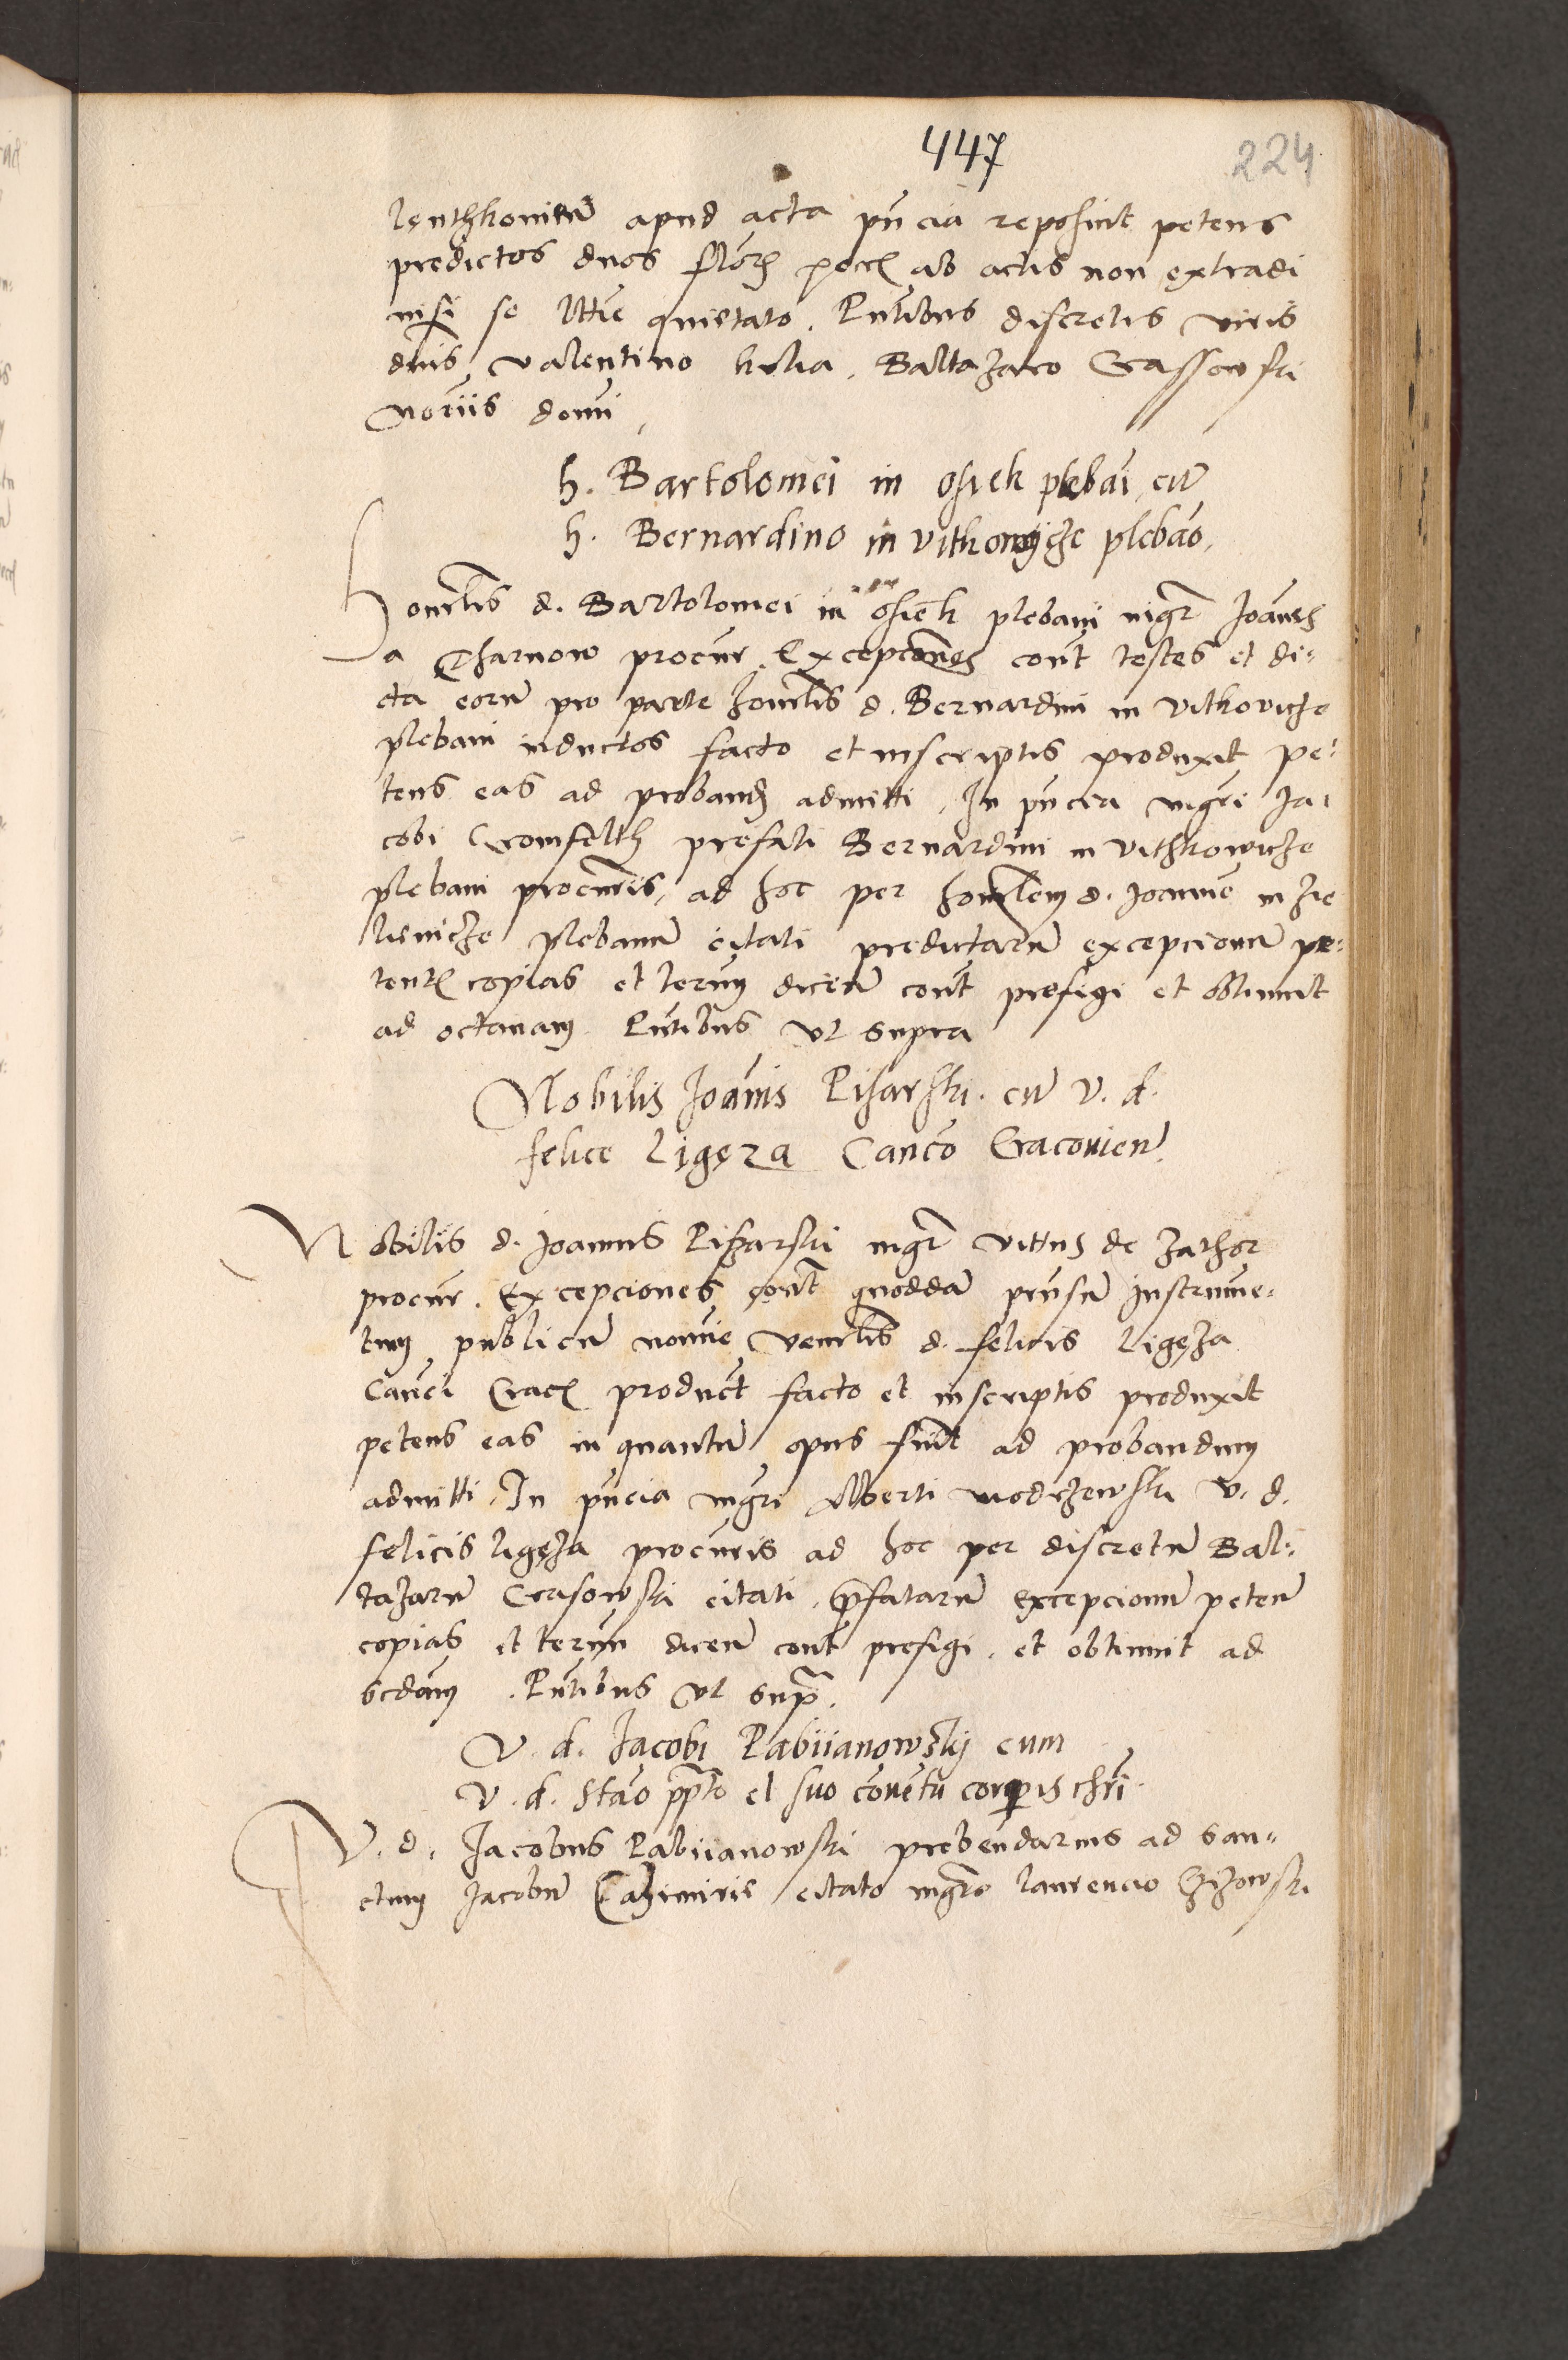 447
224
lenthkovitam apud acta pn̄cia reposuit petens
predictos duos flor pecc ab actis non extradi
nisi se lttie quietato. Pn̄tibus discretis viris
dn̄is Valentino kulia. Baltazaro Crassowski
no͞riis domi,
h. Bartolomei in osiek plebai, cu͞
h. Bernardino in vitkowycze plebāo.
Honorlis d. Bartolomei in osiek plebani mgr̄ Joānes
a Tharnow procur. Excepciones cont̄ testes et di-
cta eoru͞ pro parte honorlis d. Bernardini in Vitkovicze
plebani inductos facto et inscriptis produxit pe-
tens eas ad proband admitti. In pn̄cia mgri Ja-
cobi Cromfelth prefati Bernardini in Vithkowicze
plebani procuris, ad hoc per honorlem d. Joanne͞ in zie
lienicze plebanu͞ citati predictaru͞ excepcionu͞ pe-
tent copias et termin dicen͞ cont̄ prefigi et obtinuit
ad octavam. Pn̄tibus Vt supra
Nobilis Joānis Pisarski. cu͞ V. d.
felice Ligęza Can͞co Cracovien͞.
Nobilis d. Joannis Piszarski mgr̄ Vittus de Zathor
procur. Excepciones cont̄ quodda͞ pn̄sum Instrume-
tum publicu͞ nomie Venerlis d. felicis Ligęza
Can͞ci Crac product facto et inscriptis produxit
petens eas in quantu͞ opus fuīt ad probandum
admitti. In pn̄cia mgri Alberti modrzewski V. d.
felicis ligęza procuris ad hoc per discretu͞ Bal-
tazaru͞ Crasowski citati. p̄fataru͞ excepcionu͞ peten͞
copias et termin dicen͞ cont̄ prefigi. et obtinuit ad
scdam. Pn̄tibus Vt sup͞.
V. d. Jacobi Pabiianowskj cum
V. d. Stāo pp̄to et suo co͞ventu corporis chrī.
V. d. Jacobus Pabiianowski prebendarius ad san-
ctum Jacobu͞ Cazimirie citato mgro laurencio Czizowski